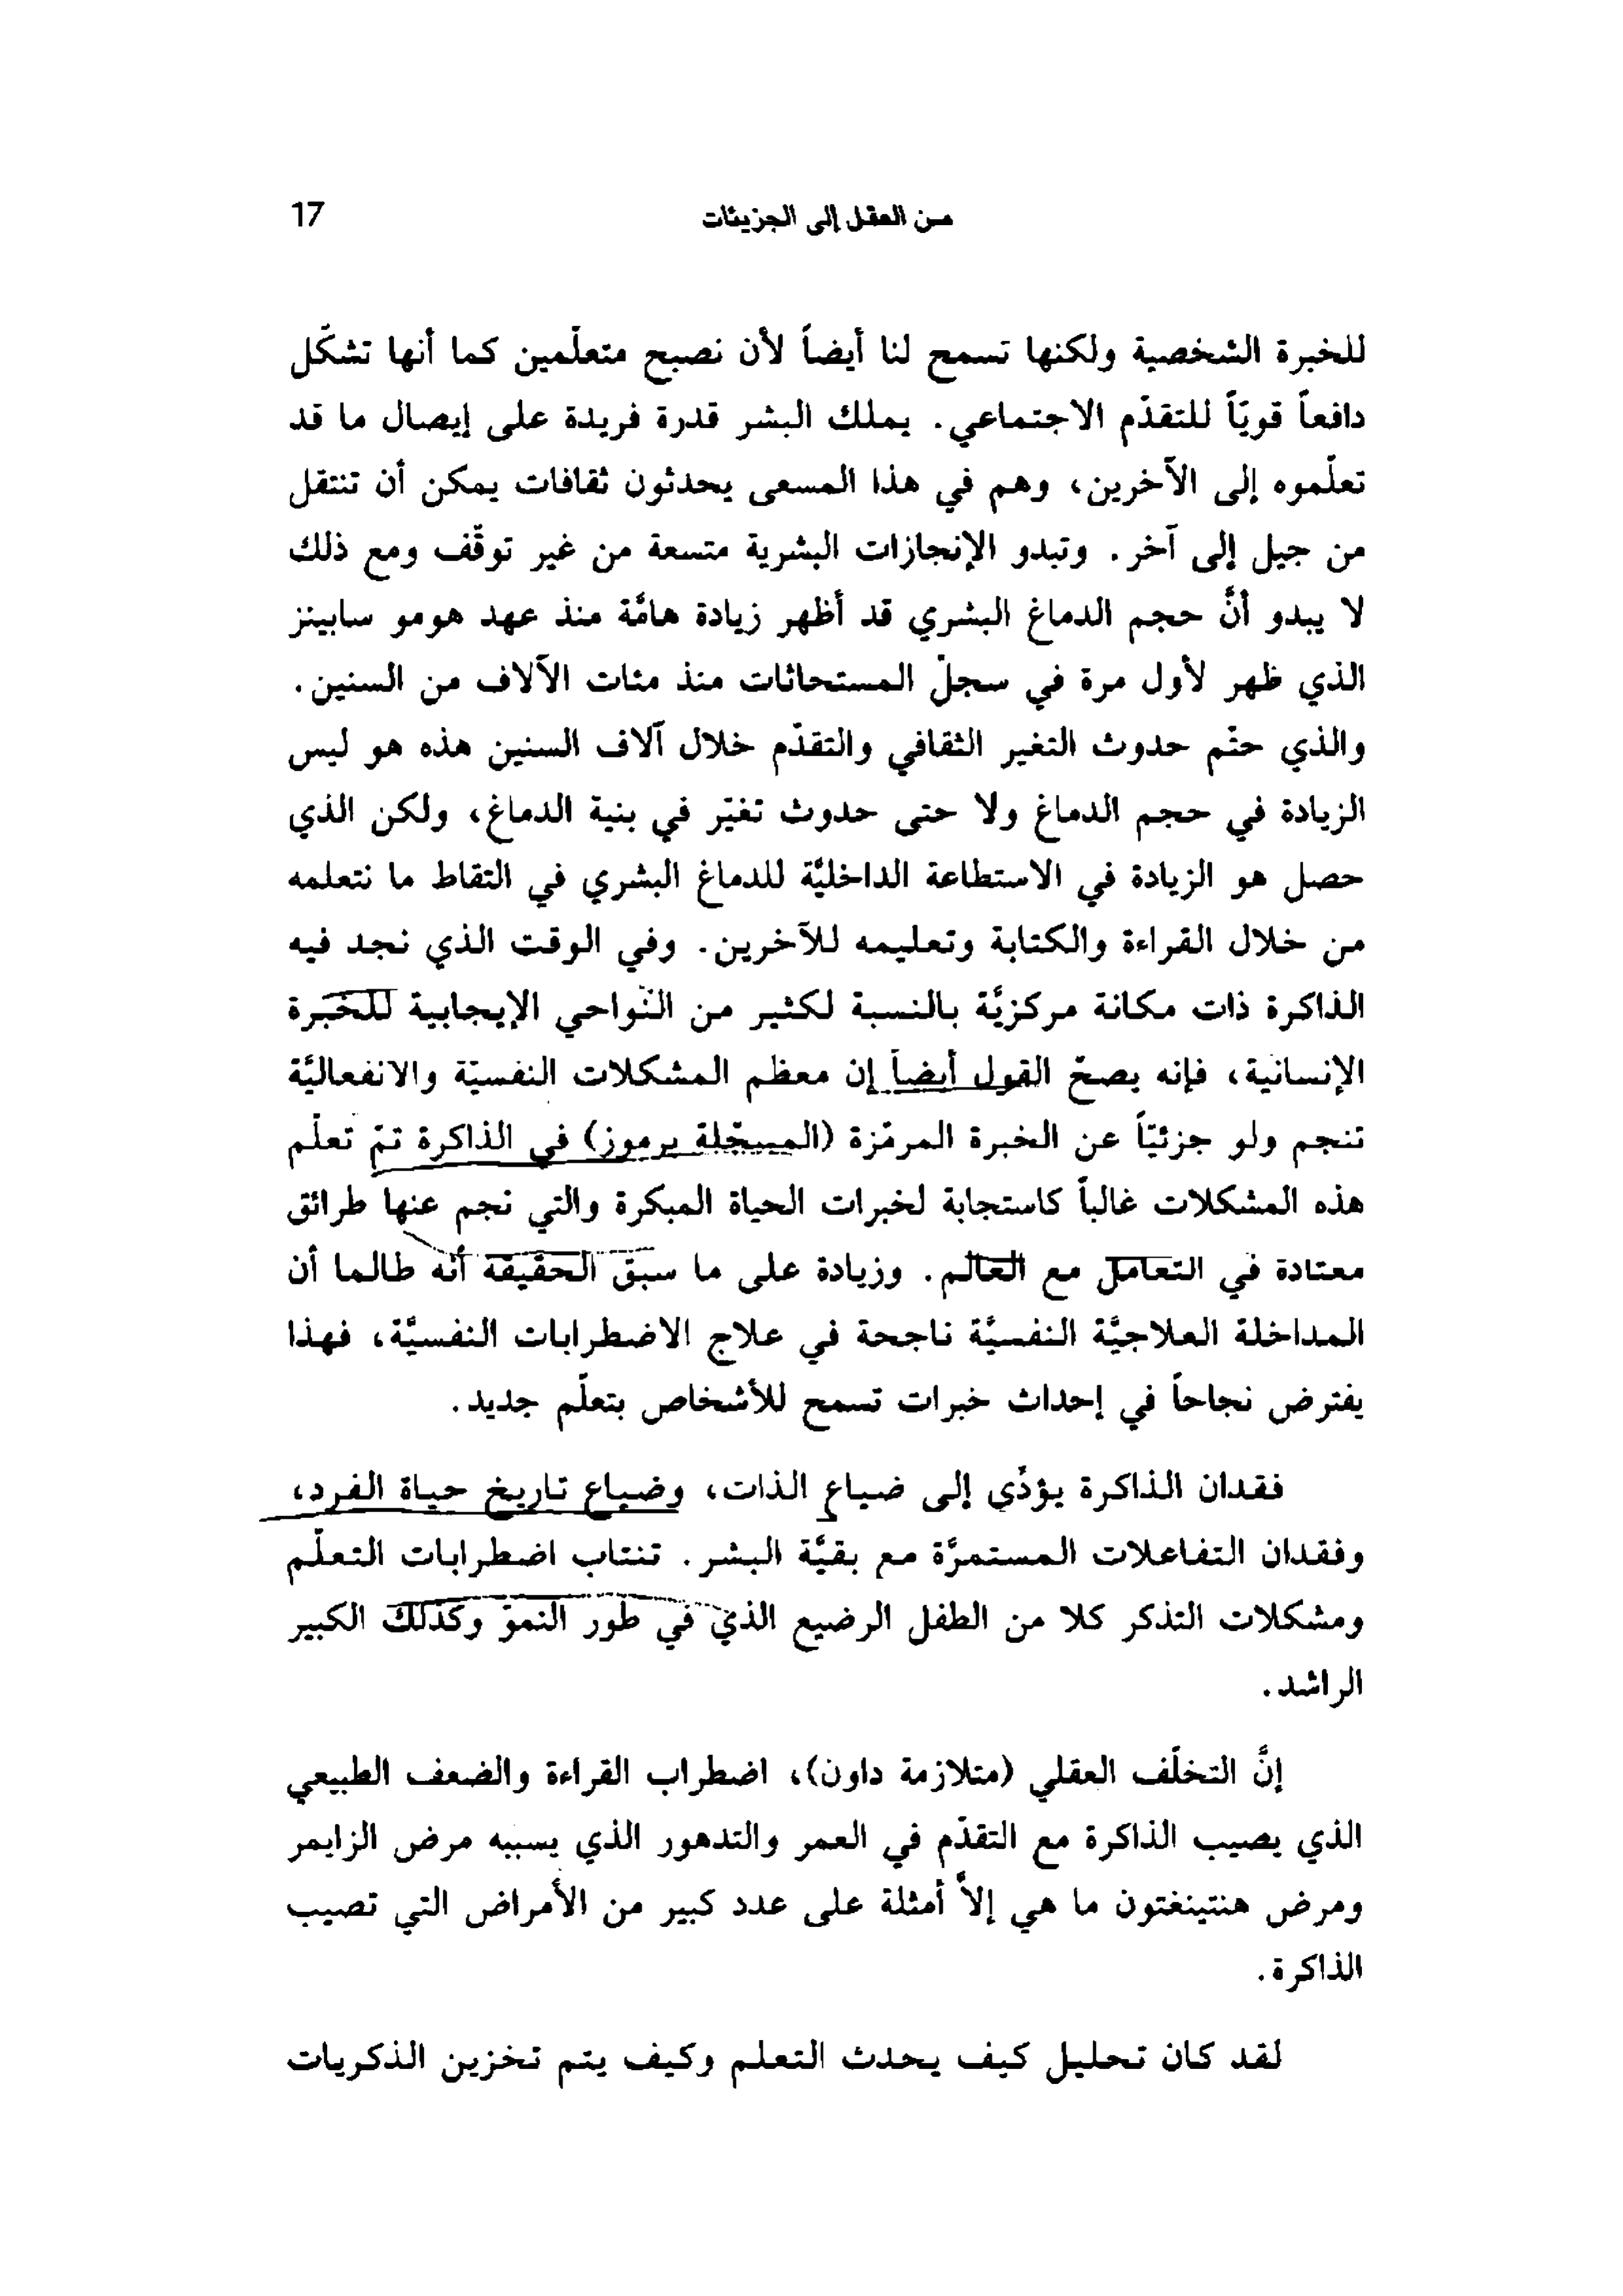 من العقل إلى الجزيئات 17
للخبرة الشخصية ولكنها تسمح لنا أيضاً لأن نصبح متعلّمين كما أنها تشكّل
دافعاً قويّاً للتقدّم الاجتماعي. يملك البشر قدرة فريدة على إيصال ما قد
تعلّموه إلى الآخرين، وهم في هذا المسعى يحدثون ثقافات يمكن أن تنتقل
من جيل إلى آخر. وتبدو الإنجازات البشرية متسعة من غير توقّف ومع ذلك
لا يبدو أنَّ حجم الدماغ البشري قد أظهر زيادة هامَّة منذ عهد هومو سابينز
الذي ظهر لأول مرة في سجلّ المستحاثات منذ مئات الآلاف من السنين.
والذي حتّم حدوث التغير الثقافي والتقدّم خلال آلاف السنين هذه هو ليس
الزيادة في حجم الدماغ ولا حتى حدوث تغيّر في بنية الدماغ، ولكن الذي
حصل هو الزيادة في الاستطاعة الداخليَّة للدماغ البشري في التقاط ما نتعلمه
من خلال القراءة والكتابة وتعليمه للآخرين. وفي الوقت الذي نجد فيه
الذاكرة ذات مكانة مركزيَّة بالنسبة لكثير من النّواحي الإيجابية للخبرة
الإنسانية، فإنه يصحّ القول أيضاً إن معظم المشكلات النفسيّة والانفعاليَّة
تنجم ولو جزئيّاً عن الخبرة المرمّزة (المسجّلة برموز) في الذاكرة تمّ تعلّم
هذه المشكلات غالباً كاستجابة لخبرات الحياة المبكرة والتي نجم عنها طرائق
معتادة في التعامل مع العالم. وزيادة على ما سبق الحقيقة أنه طالما أن
المداخلة العلاجيَّة النفسيَّة ناجحة في علاج الاضطرابات النفسيَّة، فهذا
يفترض نجاحاً في إحداث خبرات تسمح للأشخاص بتعلّم جديد.
فقدان الذاكرة يؤدّي إلى ضياع الذات، وضياع تاريخ حياة الفرد،
وفقدان التفاعلات المستمرَّة مع بقيَّة البشر. تنتاب اضطرابات التعلّم
ومشكلات التذكر كلا من الطفل الرضيع الذي في طور النموّ وكذلك الكبير
الراشد.
إنَّ التخلّف العقلي (متلازمة داون)، اضطراب القراءة والضعف الطبيعي
الذي يصيب الذاكرة مع التقدّم في العمر والتدهور الذي يسببه مرض الزايمر
ومرض هنتينغتون ما هي إلاّ أمثلة على عدد كبير من الأمراض التي تصيب
الذاكرة.
لقد كان تحليل كيف يحدث التعلم وكيف يتم تخزين الذكريات